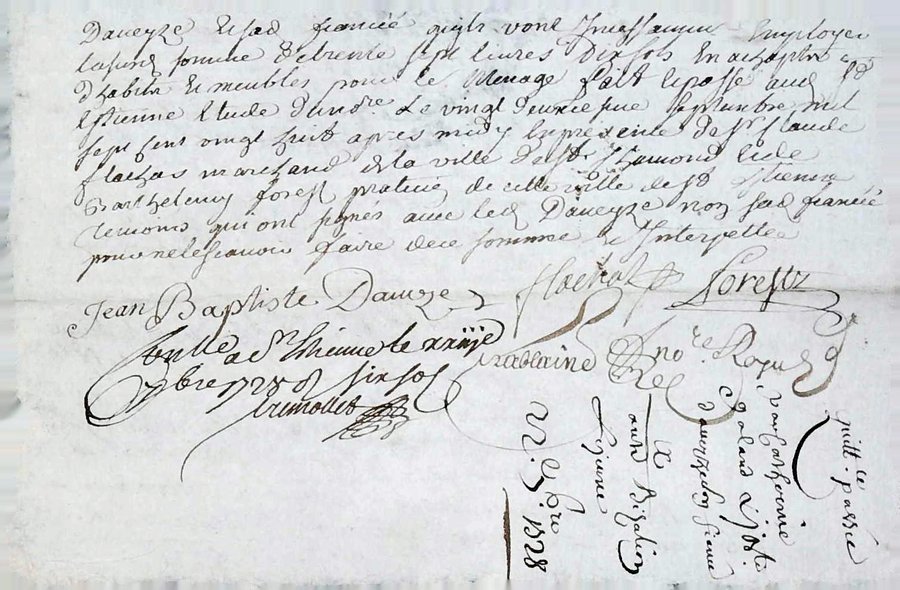 Daveyze et sad fiancée quils vont Incessament Employer
lasusd somme de trente sept livres dix sols En achapts
d'habits Et meubles pour le Menage fait Et passé aud St
Estienne Etude dud no.re Le vingt deuxiesme Septembre mil
sept cent vingt huit apres midy En presence de Sr Claude
flachat marchand de la ville de St Chamond Et de
Barthelemy forest praticien de cette ville de St Estienne
temoins qui ont signés avec led Daveyze non sad fiancée
pour ne le scavoir faire de ce sommée & Interpellée
Jean Baptiste Daveyze
flachat
Forest
Con.lle a St Etienne le xxiij
7bre 1728 Six sols
Trimollet
no.re Royal
quitt. passée
par catherine
a
aud
Etienne
22 7bre 1728